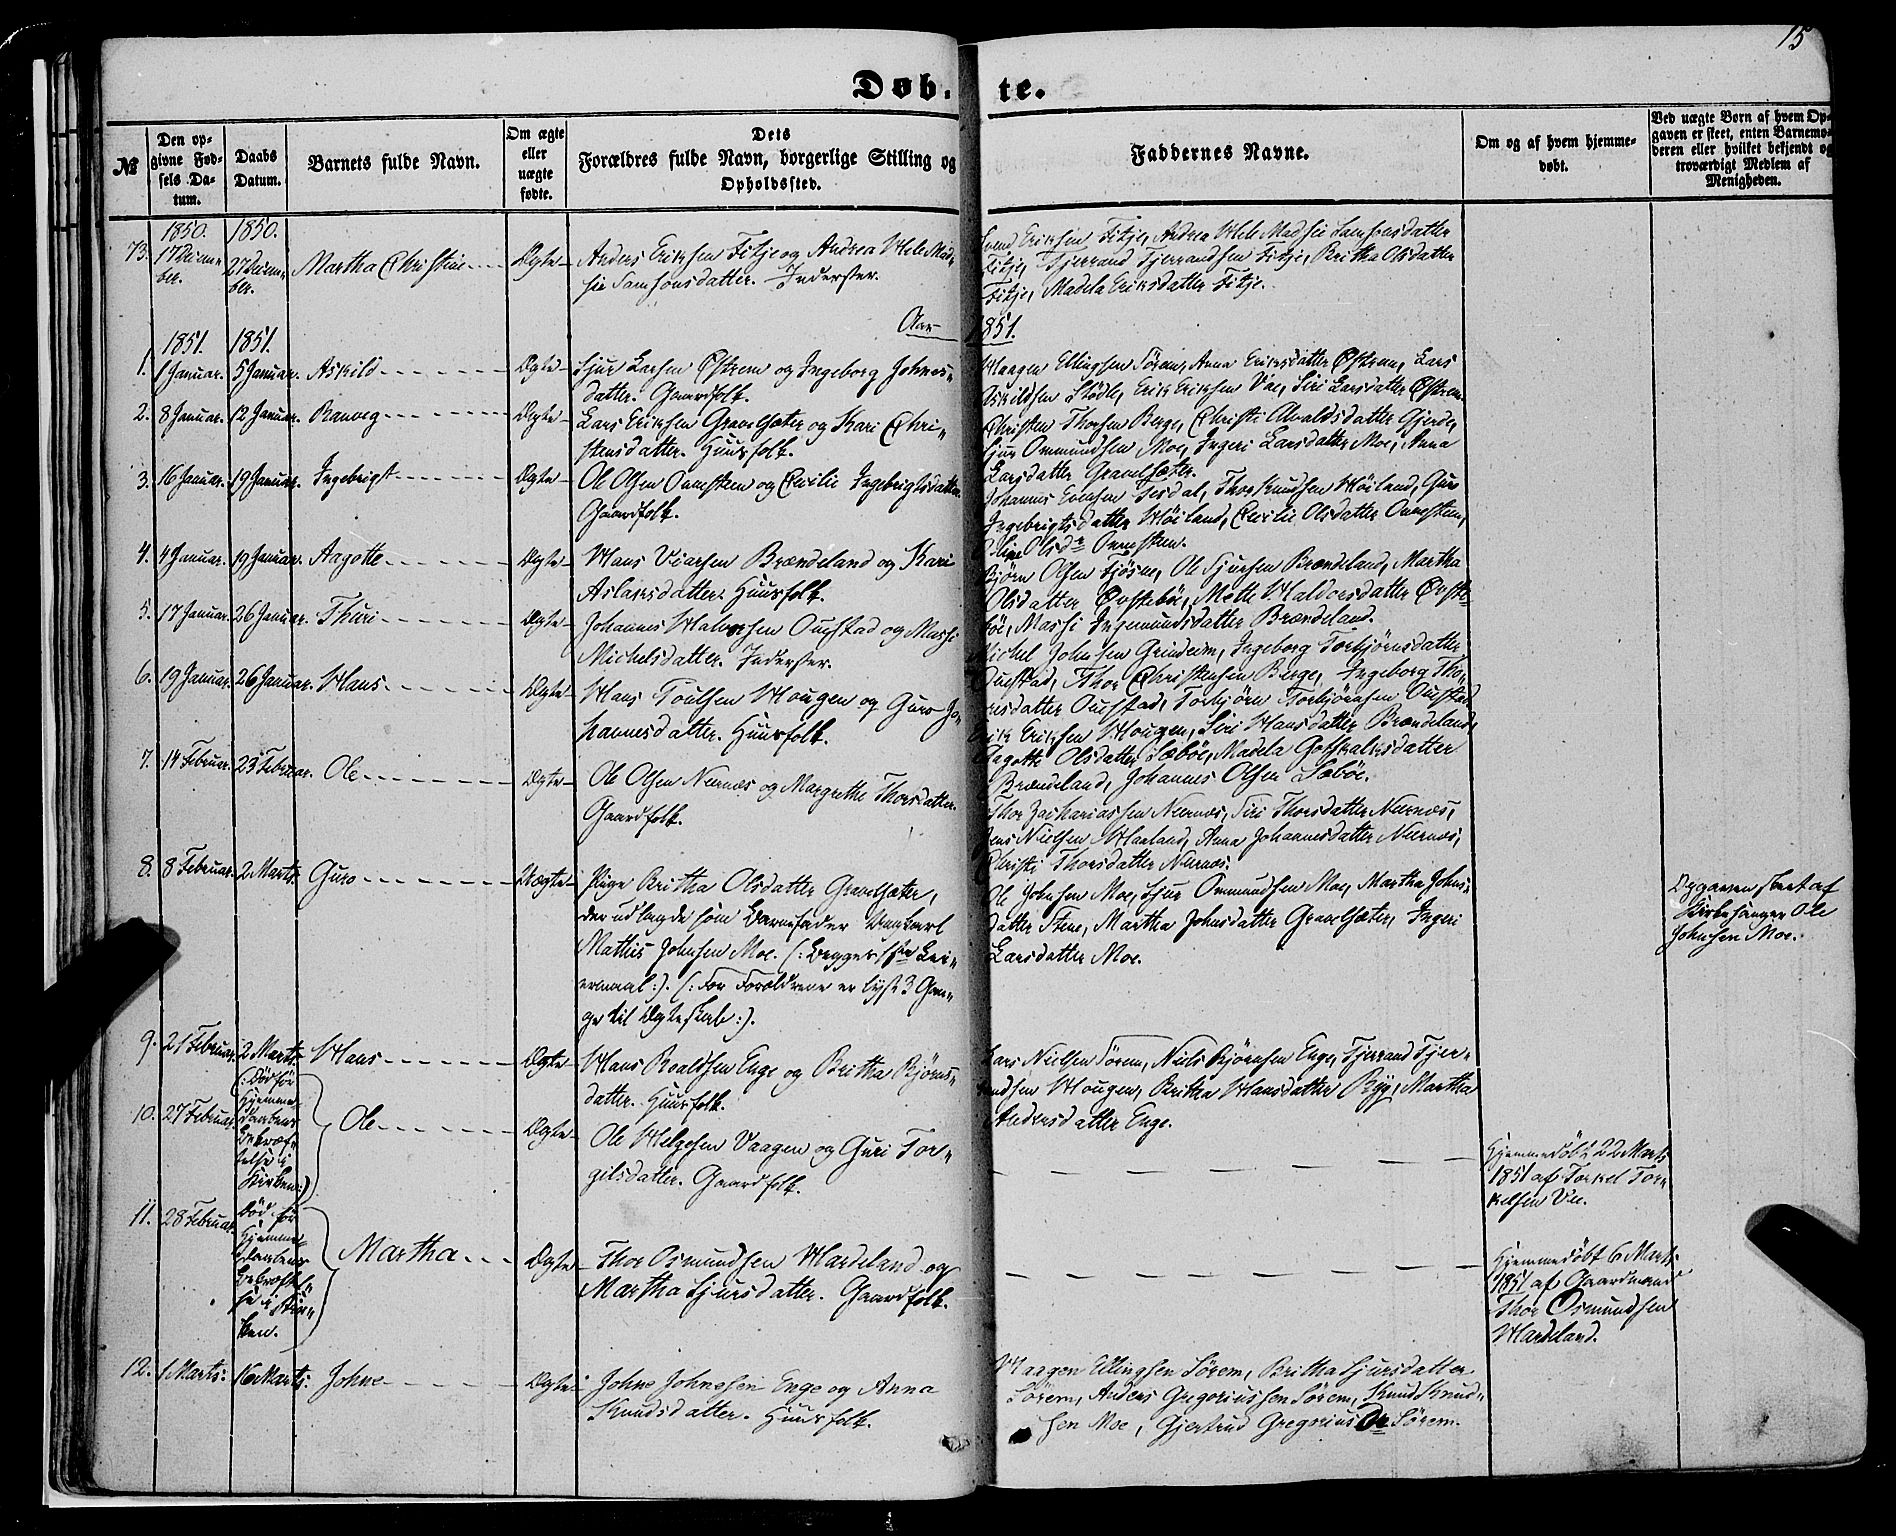 15
Døb- te.
№
Den op-
givne Fød-
sels Da-
tum.
Daabs
Datum.
Barnets fulde Navn.
Om ægte
eller
uægte
fødte.
Dets
Forældres fulde Navn, borgerlige Stilling og
Opholdssted.
Faddernes Navne.
Om og af hvem hjemme-
døbt.
Ved uægte Børn af hvem Op-
gaven er skeet, enten Barnemo-
deren eller hvilket bekjendt og
troværdigt Medlem af
Menigheden.
1850. 1850.
73. 17 Decem=
ber. 27 Decem=
ber. Martha Christine Ægte
Anders Eriksen Fitje og Andrea Hele Mad=
sie Samsonsdatter. Inderster.
Svend Eriksen Fitje, Andrea Hele Madsie Samsonsdatter
Fitje, Tjerrand Tjerrandsen Fitje, Britha Olsdatter
Fitje, Madela Eriksdatter Fitje.
Aar 1851.
1851. 1851.
1. 1 Januar. 5 Januar. Askild Ægte
Sjur Larsen Østrem og Ingeborg Johnes=
datter. Gaardfolk.
Haagen Ellingsen Sørem, Anna Eriksdatter Østrem, Lars
Askildsen Stødle, Erik Eriksen Vae, Siri Larsdatter Østrem.
2. 8 Januar. 12 Januar. Ranveg Ægte
Lars Eriksen Gravelsæter og Kari Chri=
stensdatter. Huusfolk.
Christen Thorsen Berge, Christi Alvaldsdatter Gjerde,
Sjur Ommundsen Moe, Ingeri Larsdatter Moe, Anna
Larsdatter Gravelsæter.
3. 16 Januar. 19 Januar. Ingebrigt Ægte
Ole Olsen Onnesteen og Cecilie Ingebrigtsdatter
Gaardfolk.
Johannes Evensen Tesdal, Thor Knudsen Høiland, Guro
Ingebrigtsdatter Høiland, Cecilie Olsdatter Onnesteen,
Oline Olsdr Onnesteen.
4. 4 Januar. 19 Januar. Aagotte Ægte
Hans Viarsen Brændeland og Kari
Aslaksdatter. Huusfolk.
Bjørn Olsen Fjøsne, Ole Sjursen Brændeland, Martha
Olsdatter Øvstebøe, Mette Haldorsdatter Øvste=
bøe, Massi Ingemundsdatter Brændeland.
5. 17 Januar. 26 Januar. Thuri Ægte
Johannes Halvorsen Ouestad og Massi
Michelsdatter. Inderster.
Michel Johnsen Grindeim, Ingeborg Torbjørnsdatter
Ouestad, Thor Christensen Berge, Ingeborg Tho=
resdatter Ouestad, Torbjørn Torbjørnsen Ouestad
6. 19 Januar. 26 Januar. Hans Ægte
Hans Poulsen Hougen og Guro Jo=
hannesdatter. Huusfolk.
Erik Eriksen Hougen, Siri Hansdatter Brændeland,
Aagotte Olsdatter Sæbøe, Madela Gotskalksdatter
Brændeland, Johannes Olsen Sæbøe.
7. 14 Februar. 23 Februar. Ole Ægte
Ole Olsen Nernæs og Margrethe Thorsdatter.
Gaardfolk.
Thor Zachariassen Nernæs, Siri Thorsdatter Nernæs,
Jens Nielsen Haaland, Anna Johannesdatter Nernæs,
Christi Thorsdatter Nernæs.
8. 8 Februar. 2 Marts. Guro Uægte
Pige Britha Olsdatter Gravelsæter,
der udlagde som Barnefader Ungkarl
Mathis Johnsen Moe. (: Begges 1ste Lei=
ermaal :). (: For Forældrene er lyst 3 Gan=
ge til Ægteskab :).
Ole Johnsen Moe, Sjur Ommundsen Moe, Martha Johns=
datter Stene, Martha Johnsdatter Gravelsæter, Ingeri
Larsdatter Moe.
Opgaven skeet af
Kirkesanger Ole
Johnsen Moe.
9. 21 Februar. 2 Marts. Hans Ægte
Hans Roaldsen Enge og Britha Bjørns=
datter. Huusfolk.
Lars Nielsen Sørem, Niels Bjørnsen Enge, Tjerrand Tjer=
randsen Hougen, Britha Hansdatter Ryg, Martha
Andersdatter Enge.
10. 27 Februar. (: Død før
Hjemme=
daabens
Bekræf=
telse i
Kirken :) Ole Ægte
Ole Helgesen Vaagen og Guri Tor=
gilsdatter. Gaardfolk.
Hjemmedøbt 22 Marts
1851 af Torkel Tor=
kelsen Vae.
11. 28 Februar. Død før
Hjemme=
daabens
Bekræftel=
se i Kir=
ken. Martha Ægte
Thor Osmundsen Hardeland og
Martha Sjursdatter. Gaardfolk.
Hjemmedøbt 6 Marts
1851 af Gaardmand
Thor Osmundsen
Hardeland.
12. 1 Marts. 16 Marts. Johne Ægte
Johne Johnesen Enge og Anna
Knudsdatter. Huusfolk.
Haagen Ellingsen Sørem, Britha Sjursdatter
Sørem, Anders Gregoriussen Sørem, Knud Knud=
sen Moe, Gjertrud Gregorius Dr Sørem.